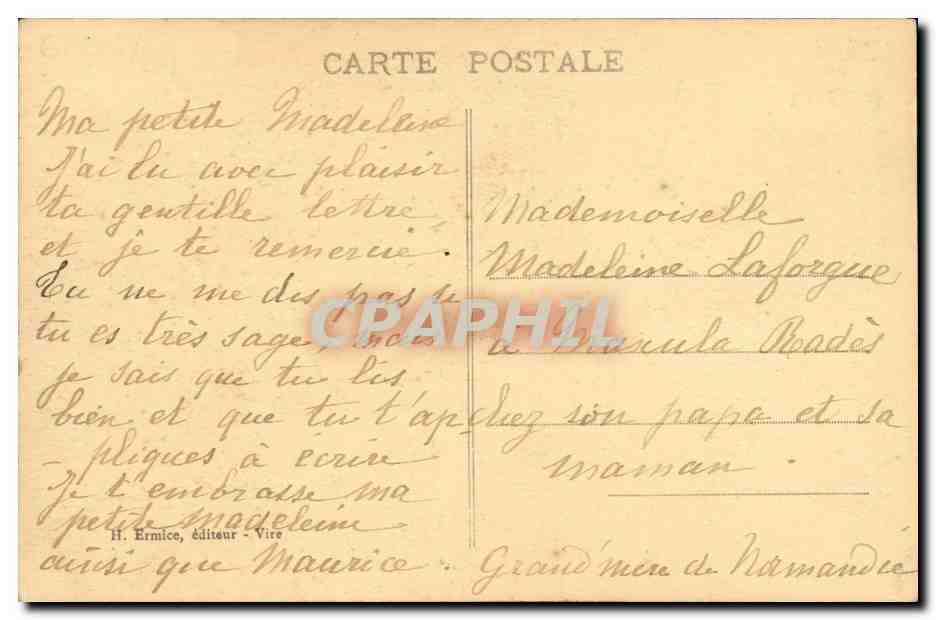 CARTE POSTALE
Ma petite Madeleine
J'ai lu avec plaisir
ta gentille lettre
et je te remercie.
Tu ne me dis pas si
tu es très sage, mais
je sais que tu lis
bien et que tu t'ap
- pliques à écrire
Je t'embrasse ma
petite Madeleine
ainsi que Maurice.
H. Ermice, éditeur - Vire
Mademoiselle
Madeleine Laforgue
à Maxula Radès
chez son papa et sa
maman.
Grand'mère de Normandie
CPAPHIL